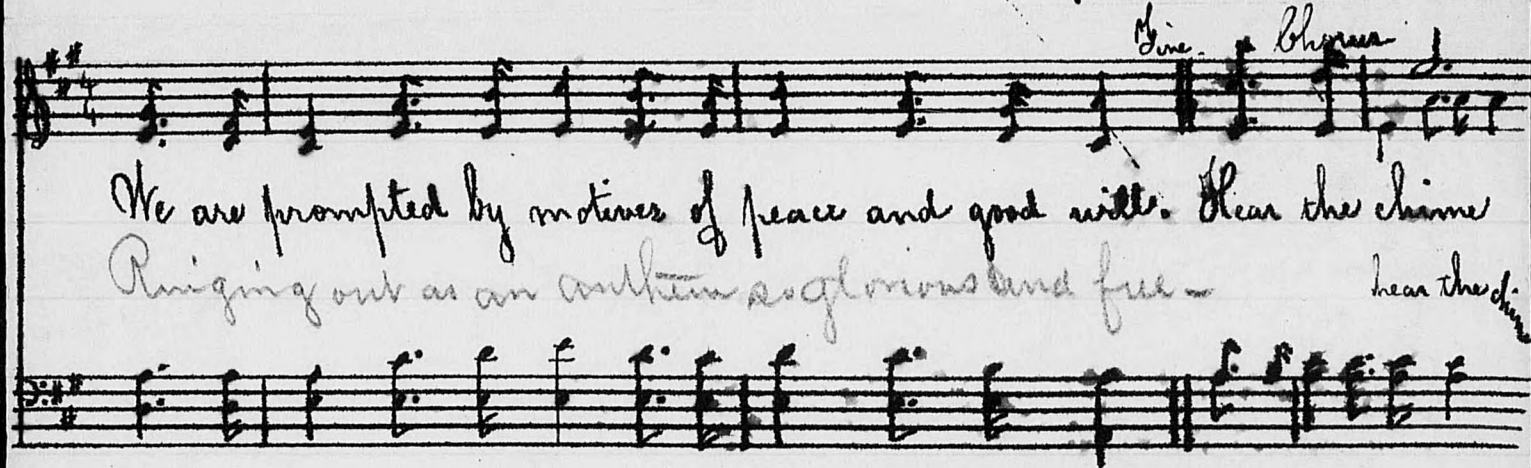 Fine. Chorus
We are prompted by motives of peace and good will. Hear the chime
Ringing out as an anthem so glorious and free-
hear the chime